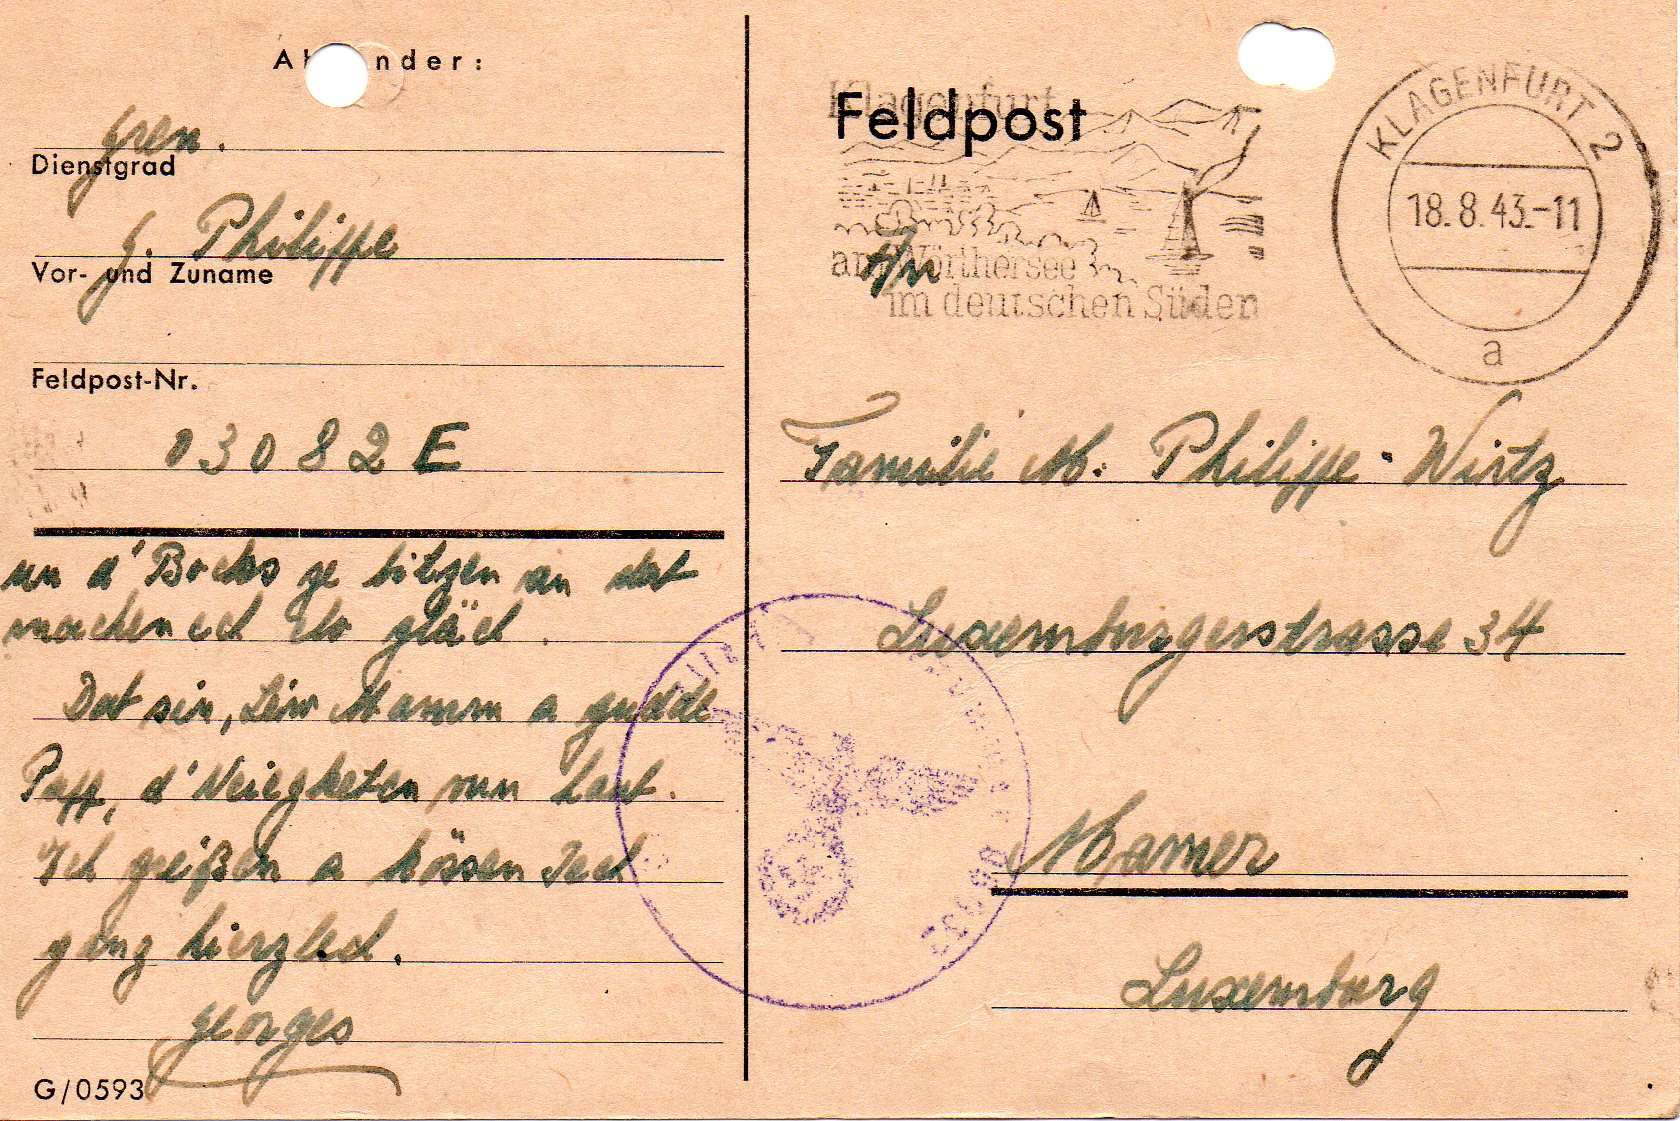 Absender:
Gren.
Dienstgrad
G. Philippe
Vor- und Zuname
Feldpost-Nr.
03082 E
un d'Bocks ze bitzen an dat
machen ech elo gläch.
Dat sin, Léiw Mamm a gudde
Paff, d'Neiegketen vun haut.
Ech greißen a kössen Iech
ganz hierzlech.
Georges
G/0593
Feldpost
Klagenfurt
am Wörthersee
im deutschen Süden
KLAGENFURT 2
18.8.43.-11
a
An
Familie M. Philippe-Wirtz
Luxemburgerstrasse 34
Mamer
Luxemburg